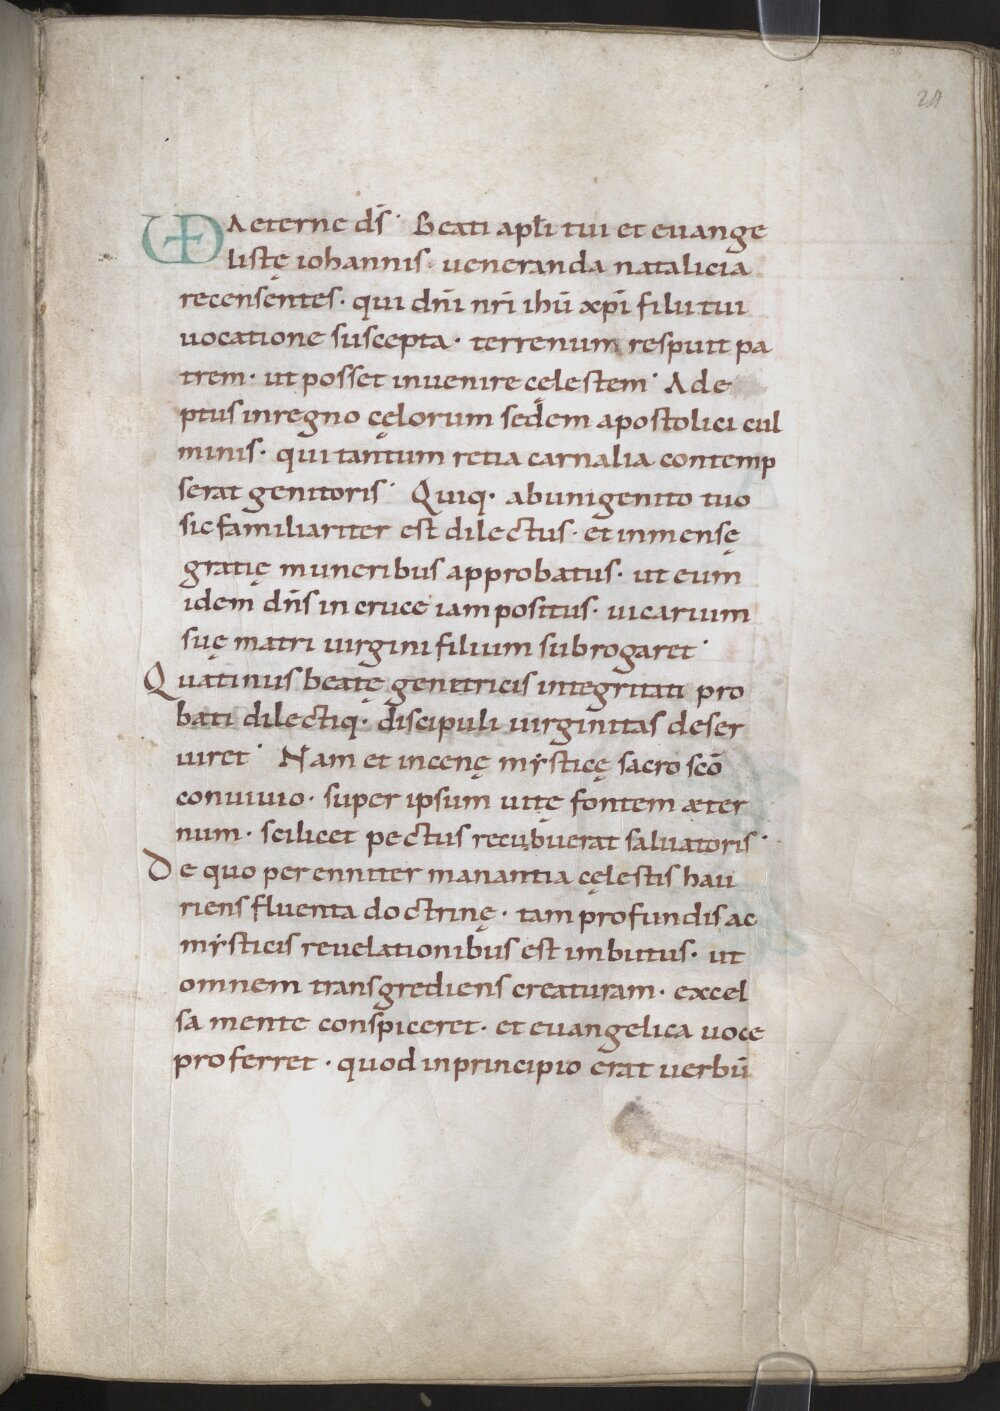 24
UD Aeterne dn̄s· Beati apłi tui et euange
listę iohannis· ueneranda natalicia
recensentes· qui dn̄i nr̄i ihū xp̄i filii tui
uocatione suscepta· terrenum respuit pa
trem· ut posset inuenire cęlestem· Ade
ptus in regno cęlorum sedem apostolici cul
minis· qui tantum retia carnalia contemp
serat genitoris· Quiq· ab unigenito tuo
sic familiariter est dilectus· et inmensę
gratię muneribus approbatus· ut eum
idem dn̄s in cruce iam positus· uicarium
suę matri uirgini filium subrogaret·
Quatinus beatę genitricis integritati pro
bati dilectiq· discipuli uirginitas deser
uiret· Nam et in cenę mysticę sacro sc̄o
conuiuio· super ipsum uitę fontem æter
num· scilicet pectus recubuerat saluatoris·
De quo perenniter manantia cęlestis hau
riens fluenta doctrinę· tam profundis ac
mysticis reuelationibus est imbutus· ut
omnem transgrediens creaturam· excel
sa mente conspiceret· et euangelica uoce
proferret· quod in principio erat uerbū